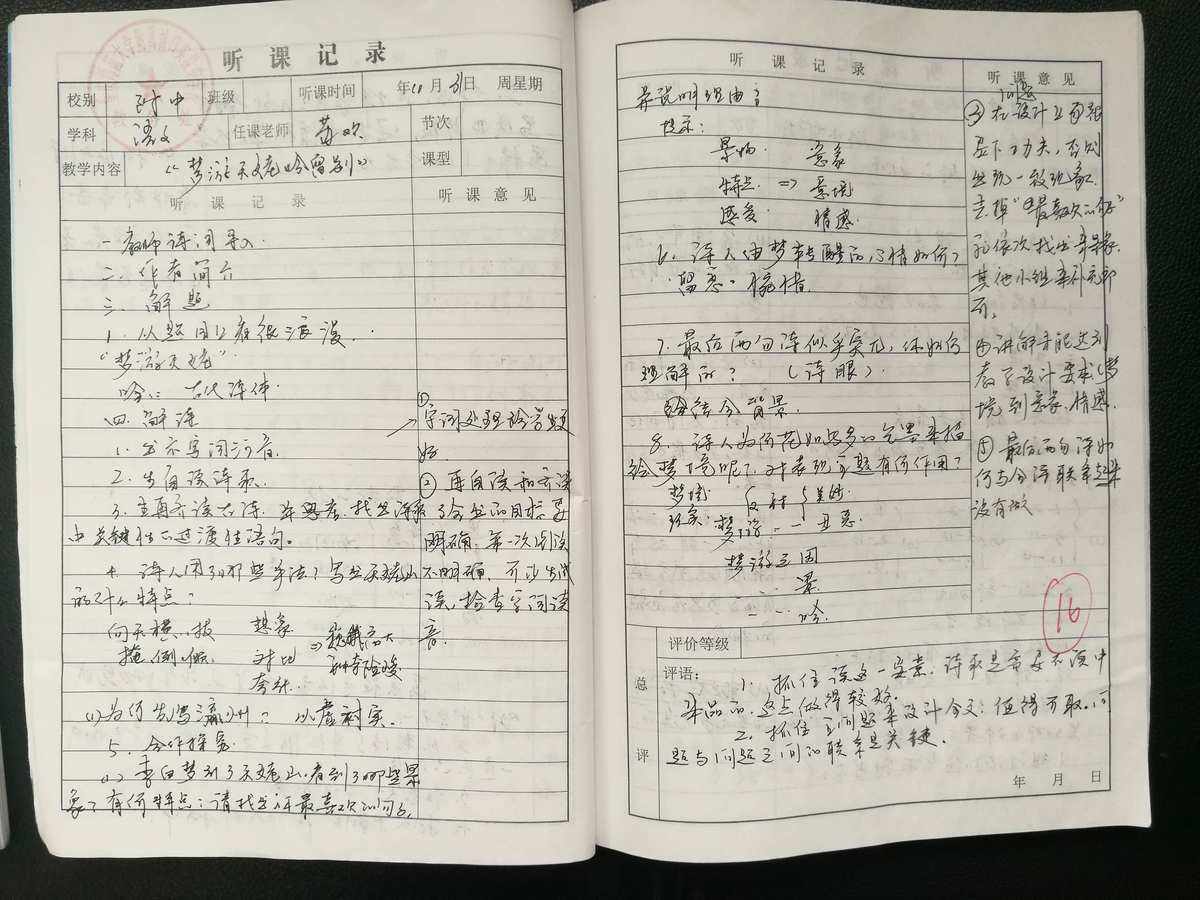 听课记录
校别 附中 班级 听课时间 年 11 月 31 日 周星期
学科 语文 任课老师 苏欢 节次
教学内容 《梦游天姥吟留别》 课型
听课记录 听课意见
一 教师诗词导入
二. 作者简介
三. 解题
1. 从题目上看很浪漫.
"梦游天姥"
吟: 古代诗体
四. 解读
1. 出示字词注音
2. 生自读诗歌
3. 生再齐读古诗, 并思考, 找出诗歌
中关键性的过渡性语句。
4. 诗人用了哪些手法? 写出天姥山
的什么特点?
向天横 拔 想象
掩, 倒, 倾 对比
夸张
(1) 为何先写瀛洲? 以虚衬实.
5. 合作探究
(1) 李白梦到了天姥山, 看到了哪些景
象? 有何特点? 请找出你最喜欢的句子,
① 字词处理
好.
② 再自读和齐读
明确. 第一次
不明确,
读, 检查字词读
音.
听课记录
并说明理由?
提示:
景物 意象
特点 => 意境
感受 情感
6. 诗人由梦转醒的心情如何?
留恋. 惋惜.
7. 最后两句诗似乎突兀, 你如何
理解的? (诗眼).
结合背景.
8. 诗人为何花如此多的笔墨来描
绘梦境呢? 对表现主题有何作用?
梦境 反衬
现实: 丑恶
梦游之因
梦
吟.
听课意见
③ 在设计上
下功夫, 否则
出现一致现象.
去掉"最喜欢的句子"
依次找出
其他小组来补充即
可。
④ 讲解
教学设计要求, 梦
境到意象, 情感.
⑤ 最后两句诗如
何与全诗联系起来
没有做
16
总评
评价等级
评语: 1. 抓住读这一要素. 诗歌是需要在读中
来品的. 这点做得较好.
2. 抓住主问题来设计全文. 值得可取. 问
题与问题之间的联系是关键.
年 月 日